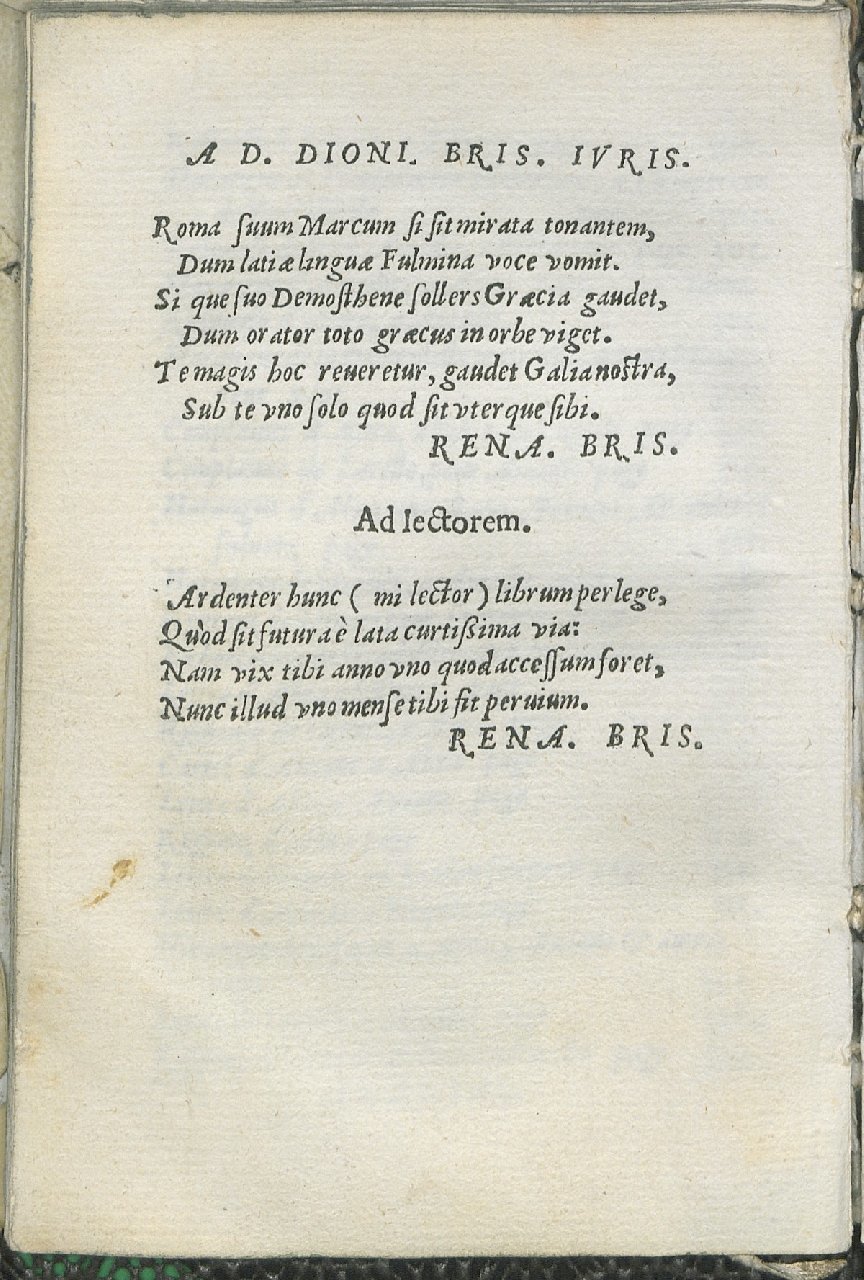 A D. DIONI. BRIS. IVRIS.
Roma ſuum Marcum ſi ſit mirata tonantem,
Dum latiæ linguæ Fulmina voce vomit.
Si que ſuo Demoſthene ſollers Græcia gaudet,
Dum orator toto græcus in orbe viget.
Te magis hoc reueretur, gaudet Galia noſtra,
Sub te vno ſolo quod ſit vterque ſibi.
RENA. BRIS.
Ad lectorem.
Ardenter hunc ( mi lector ) librum perlege,
Quòd ſit futura è lata curtiſsima via:
Nam vix tibi anno vno quod acceſſum foret,
Nunc illud vno menſe tibi fit peruium.
RENA. BRIS.